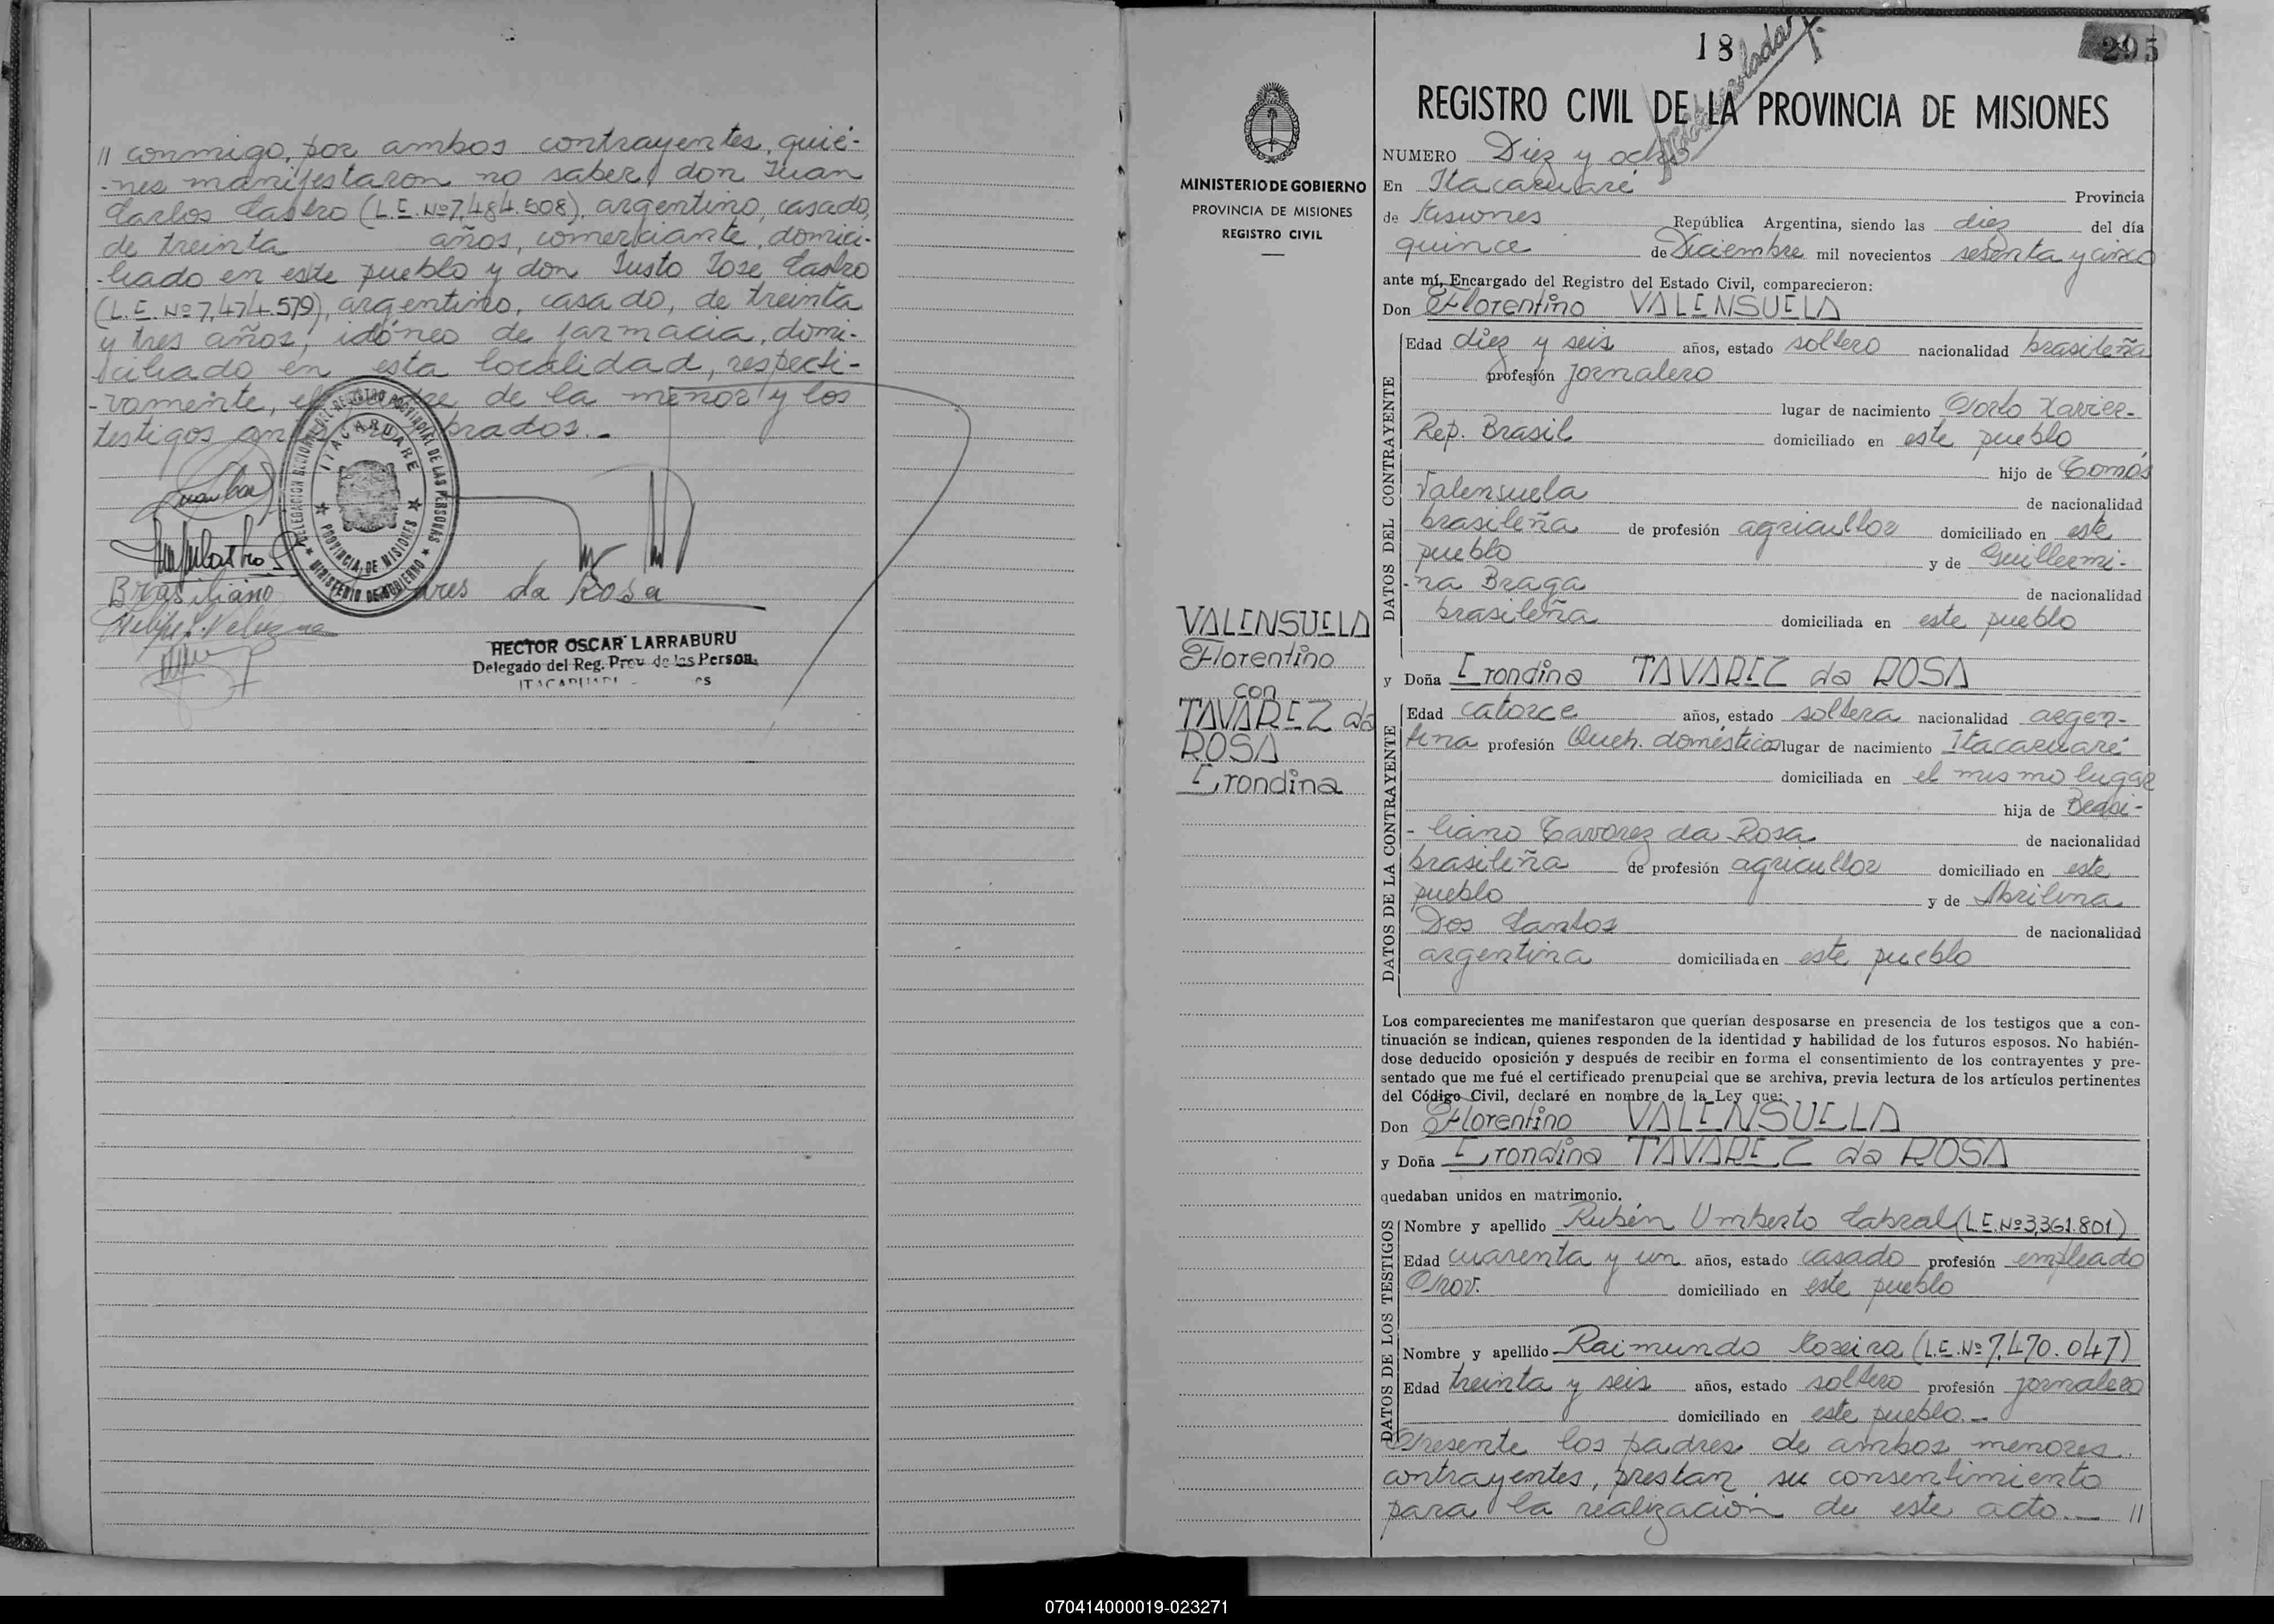 // conmigo, por ambos contrayentes, quié-
-nes manifestaron no saber, don Juan
Carlos Castro (L.E. Nº 7,484.508), argentino, casado,
de treinta años, comerciante, domici-
-liado en este pueblo y don Justo José Castro
(L.E. Nº 7,474.579), argentino, casado, de treinta
y tres años, idóneo de farmacia, domi-
-ciliado en esta localidad, respecti-
-vamente, el de la menor y los
testigos
DELEGACION SECCIONAL DEL REGISTRO PROVINCIAL DE LAS PERSONAS
ITACARUARE
PROVINCIA DE MISIONES
MINISTERIO DE GOBIERNO
Brasiliano da Rosa
HECTOR OSCAR LARRABURU
Delegado del Reg. Prov de las Person.
18
295
REGISTRO CIVIL DE LA PROVINCIA DE MISIONES
MINISTERIO DE GOBIERNO
PROVINCIA DE MISIONES
REGISTRO CIVIL
NUMERO Diez y ocho
En Itacaruaré Provincia
de Misiones República Argentina, siendo las diez del día
quince de Diciembre mil novecientos sesenta y cinco
ante mí, Encargado del Registro del Estado Civil, comparecieron:
Don Florentino VALENSUELA
DATOS DEL CONTRAYENTE
Edad diez y seis años, estado soltero nacionalidad brasileña
profesión jornalero
lugar de nacimiento Porto Xavier-
Rep. Brasil domiciliado en este pueblo
hijo de Tomás
Valensuela de nacionalidad
brasileña de profesión agricultor domiciliado en este
pueblo y de Guillermi-
-na Braga de nacionalidad
brasileña domiciliada en este pueblo
VALENSUELA
Florentino
con
TAVAREZ da
ROSA
Erondina
y Doña Erondina TAVAREZ da ROSA
DATOS DE LA CONTRAYENTE
Edad catorce años, estado soltera nacionalidad argen-
tina profesión Queh. domésticos lugar de nacimiento Itacaruaré
domiciliada en el mismo lugar
hija de Brasi-
-liano Tavarez da Rosa de nacionalidad
brasileña de profesión agricultor domiciliado en este
pueblo y de Abrilina
Dos Santos de nacionalidad
argentina domiciliada en este pueblo
Los comparecientes me manifestaron que querían desposarse en presencia de los testigos que a con-
tinuación se indican, quienes responden de la identidad y habilidad de los futuros esposos. No habién-
dose deducido oposición y después de recibir en forma el consentimiento de los contrayentes y pre-
sentado que me fué el certificado prenupcial que se archiva, previa lectura de los artículos pertinentes
del Código Civil, declaré en nombre de la Ley que:
Don Florentino VALENSUELA
y Doña Erondina TAVAREZ da ROSA
quedaban unidos en matrimonio.
DATOS DE LOS TESTIGOS
Nombre y apellido Rubén Umberto Cabral (L.E. Nº 3,361.801)
Edad cuarenta y un años, estado casado profesión empleado
Prov. domiciliado en este pueblo
Nombre y apellido Raimundo (L.E. Nº 7,470.047)
Edad treinta y seis años, estado soltero profesión jornalero
domiciliado en este pueblo.-
Presente los padres de ambos menores
contrayentes, prestan su consentimiento
para la realización de este acto.- //
070414000019-023271